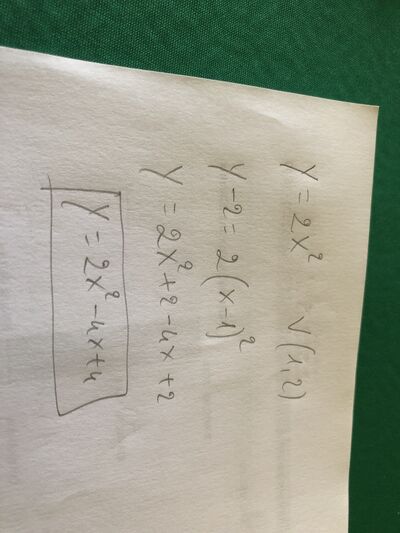 y = 2x² V(1,2)
y-2 = 2(x-1)²
y = 2x²+2-4x+2
y = 2x²-4x+4